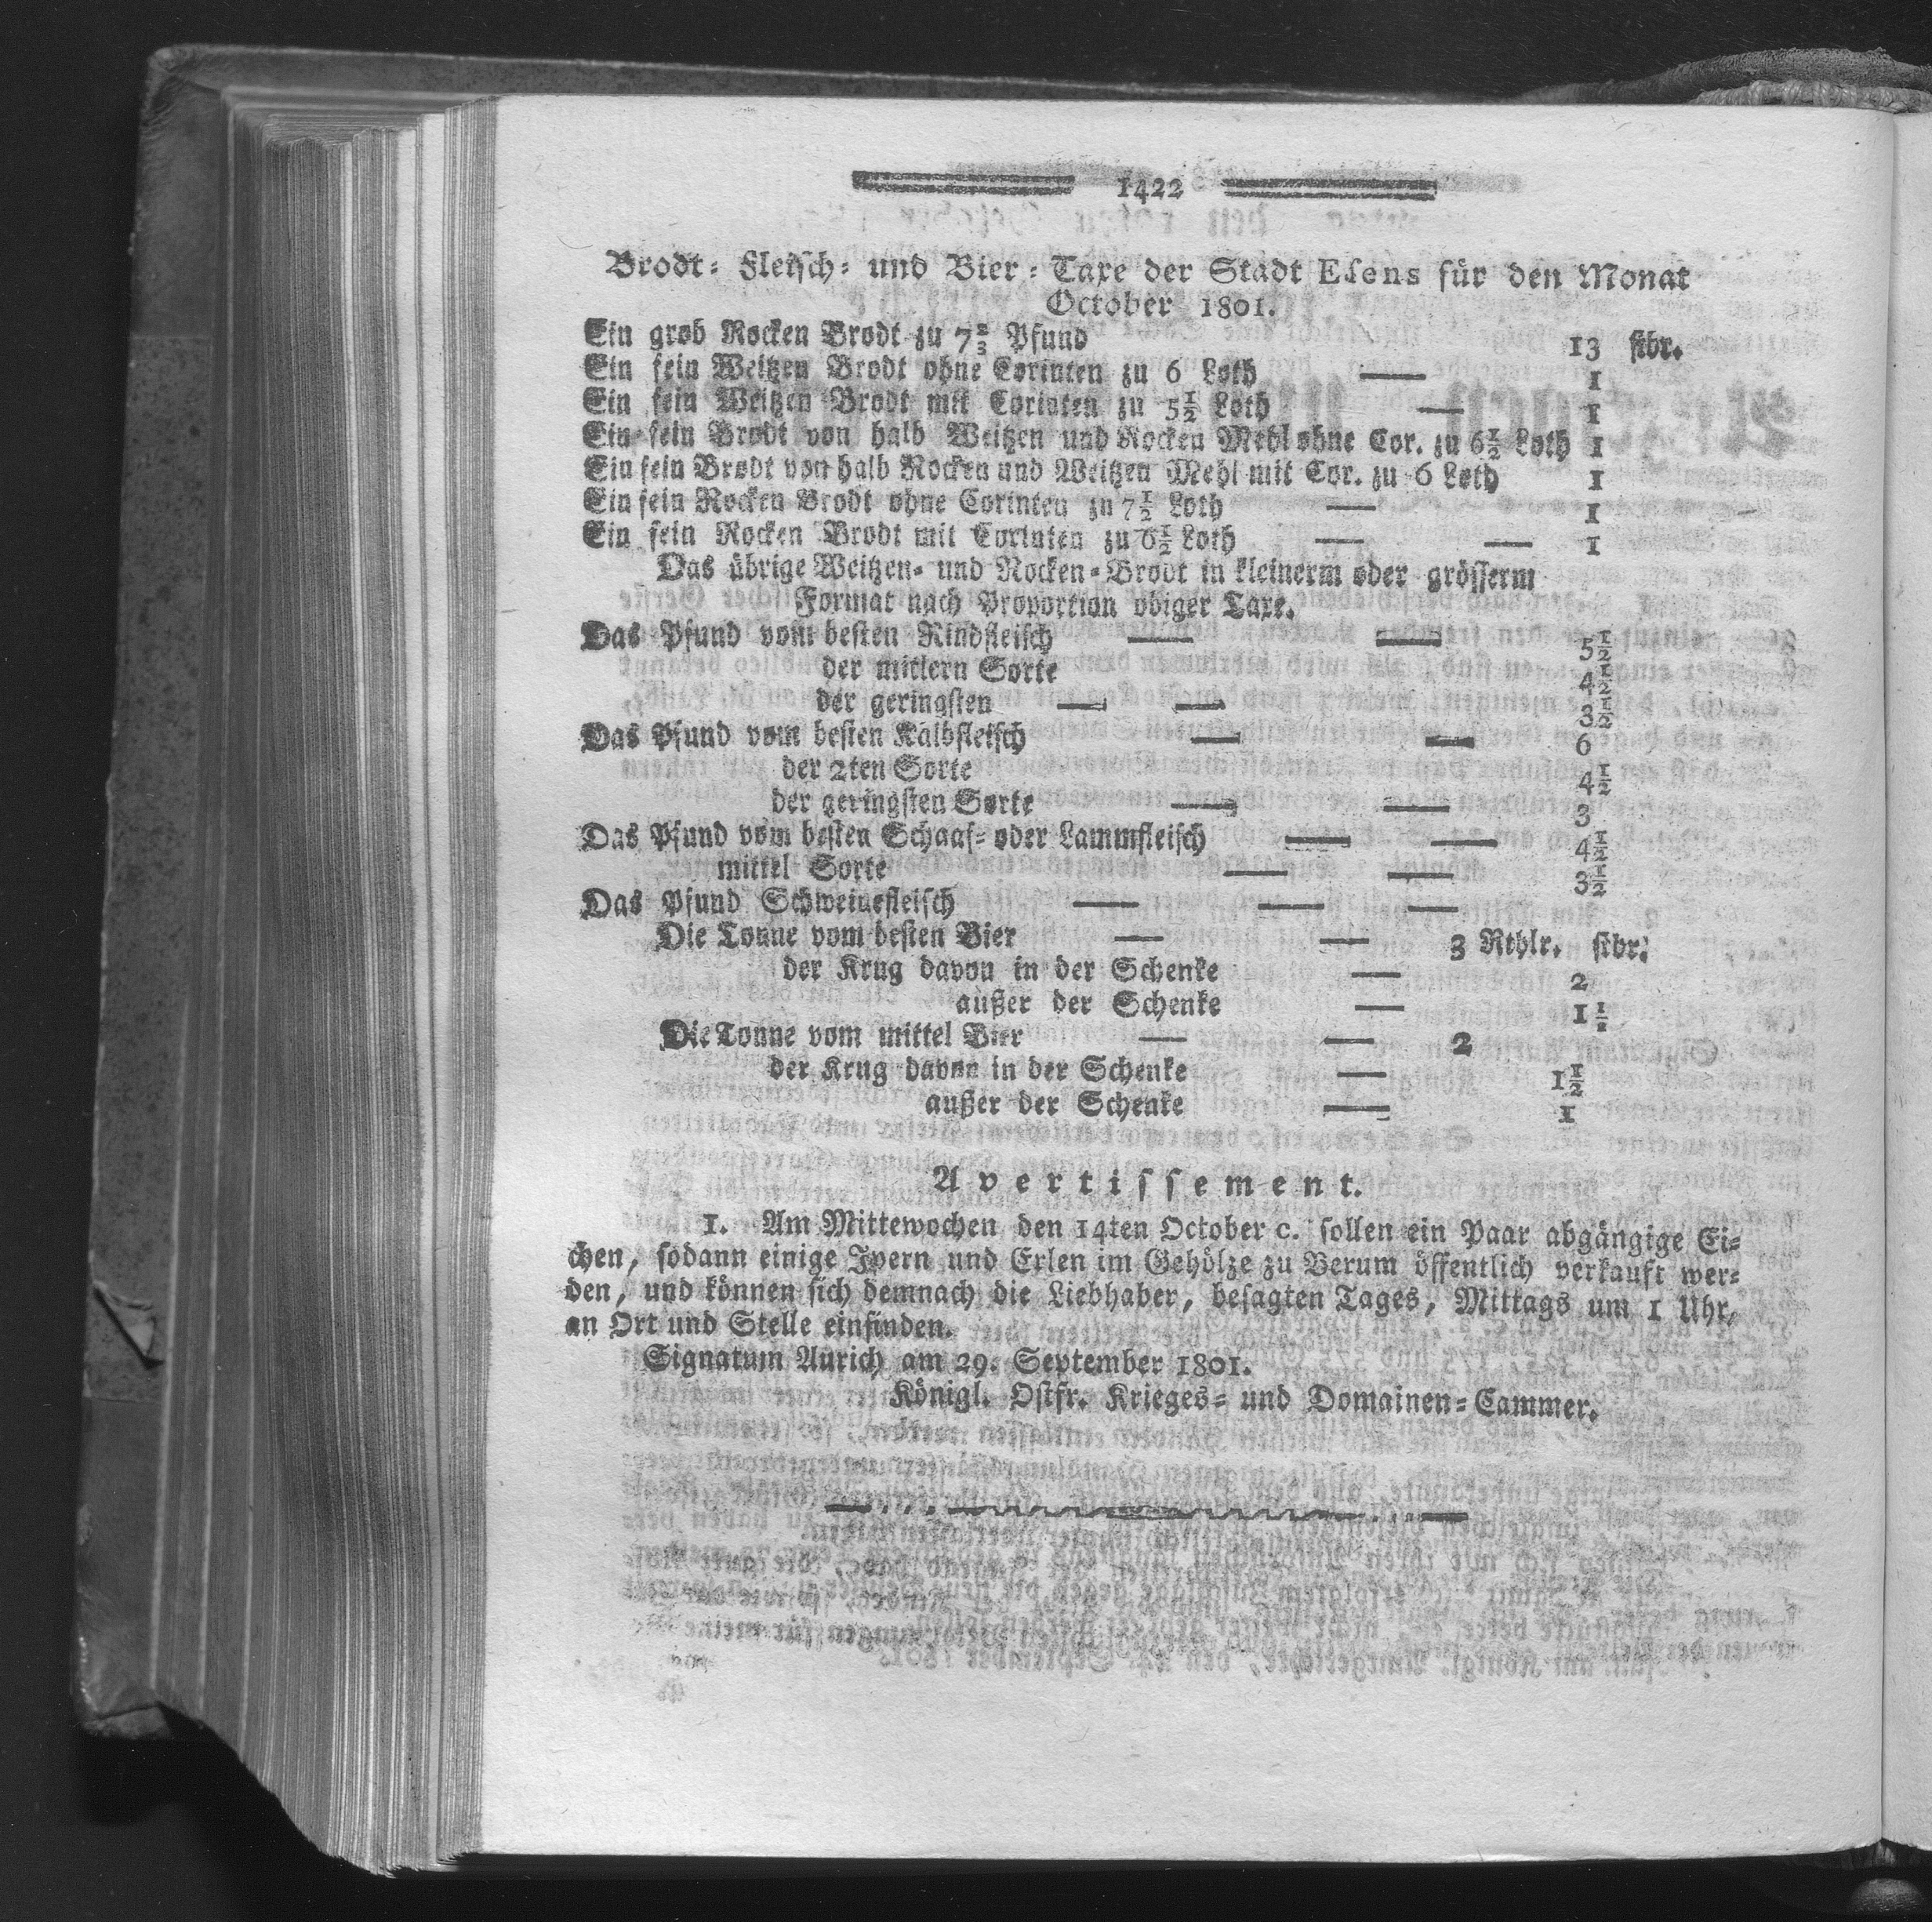 1422
Brodt- Fleisch- und Bier-Taxe der Stadt Esens für den Monat
October 1801.
Ein grob Rocken Brodt zu 7 2/3 Pfund 13 stbr.
Ein fein Weitzen Brodt ohne Corinten zu 6 Loth — 1
Ein fein Weitzen Brodt mit Corinten zu 5 1/2 Loth — 1
Ein fein Brodt von halb Weitzen und Rocken Mehl ohne Cor. zu 6 1/2 Loth 1
Ein fein Brodt von halb Rocken und Weitzen Mehl mit Cor. zu 6 Loth 1
Ein fein Rocken Brodt ohne Corinten zu 7 1/2 Loth — 1
Ein fein Rocken Brodt mit Corinten zu 6 1/2 Loth — — 1
Das übrige Weitzen- und Rocken-Brodt in kleinerm oder grösserm
Format nach Proportion obiger Taxe.
Das Pfund vom besten Rindfleisch — — 5 1/2
der mitlern Sorte 4 1/2
der geringsten — — 3 1/2
Das Pfund vom besten Kalbfleisch — — 6
der 2ten Sorte 4 1/2
der geringsten Sorte — — 3
Das Pfund vom besten Schaaf- oder Lammfleisch — — 4 1/2
mittel Sorte — — 3 1/2
Das Pfund Schweinefleisch — — —
Die Tonne vom besten Bier — — 3 Rthlr. stbr.
der Krug davon in der Schenke — 2
außer der Schenke — 1 1/2
Die Tonne vom mittel Bier — — 2
der Krug davon in der Schenke — 1 1/2
außer der Schenke — 1
Avertissement.
1. Am Mittewochen den 14ten October c. sollen ein Paar abgängige Ei-
chen, sodann einige Ipern und Erlen im Gehölze zu Berum öffentlich verkauft wer-
den, und können sich demnach die Liebhaber, besagten Tages, Mittags um 1 Uhr,
an Ort und Stelle einfinden.
Signatum Aurich am 29. September 1801.
Königl. Ostfr. Krieges- und Domainen-Cammer.